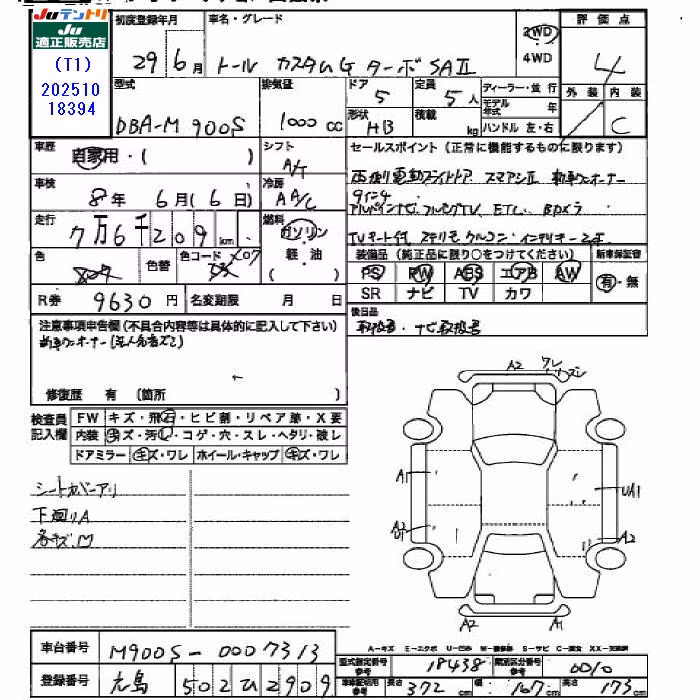 Juテントリ
Ju
適正販売店
(T1)
202510
18394
初度登録年月 車名・グレード 2WD 4WD 評価点
29年6月 トール カスタムG ターボ SAⅡ 4
型式 排気量 ドア 定員 ディーラー・並行 外装 内装
DBA-M900S 1000cc 5 5人 モデル年式 年 C
形状 HB 積載 kg ハンドル 左・右
車歴 自家用・( ) シフト A/T
セールスポイント(正常に機能するものに限ります)
車検 8年6月(6日) 冷房 AA/C
両側電動スライドドア スマアシⅡ 新車ワンオーナー
9インチ
アルパインナビ、フルセグTV、ETC、Bカメラ
走行 7万6千209km 燃料 ガソリン・軽油( )
色 色替 色コード X07
装備品(純正品に限り○をつけてください) 新車保証書
PS PW ABS エアB AW 有・無
SR ナビ TV カワ
R券 9630円 名変期限 月 日
後日品
取扱書・ナビ取扱書
注意事項申告欄(不具合内容等は具体的に記入して下さい)
新車ワンオーナー
修復歴 有 [箇所 ]
検査員記入欄
FW キズ・飛石・ヒビ割・リペア跡・X要
内装 キズ・汚れ・コゲ・穴・スレ・ヘタリ・破レ
ドアミラー キズ・ワレ ホイール・キャップ キズ・ワレ
シートカバーアリ
下廻りA
各キズ凹
A2 ワレ
A1
UA1
A2
A2
A1
A-キズ E-エクボ U-凹み W-補修跡 S-サビ C-腐食 XX-交換済
車台番号 M900S-0007313
型式指定番号 参考 18438 類別区分番号 参考 0010
登録番号 広島502ひ2909
車体記載引用 参考 長さ 372cm 幅 167cm 高さ 173cm